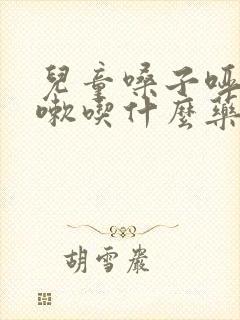 兒童嗓子啞
嗽喫什麼藥
胡雪巖